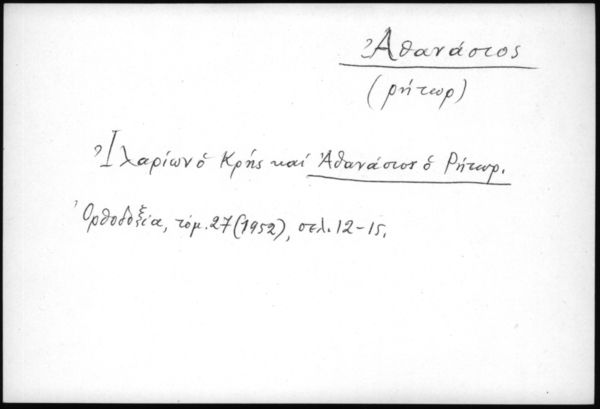 Ἀθανάσιος
(ρήτωρ)
Ἱλαρίων ὁ Κρής καί Ἀθανάσιος ὁ Ρήτωρ.
Ὀρθοδοξία, τόμ. 27 (1952), σελ. 12-15.